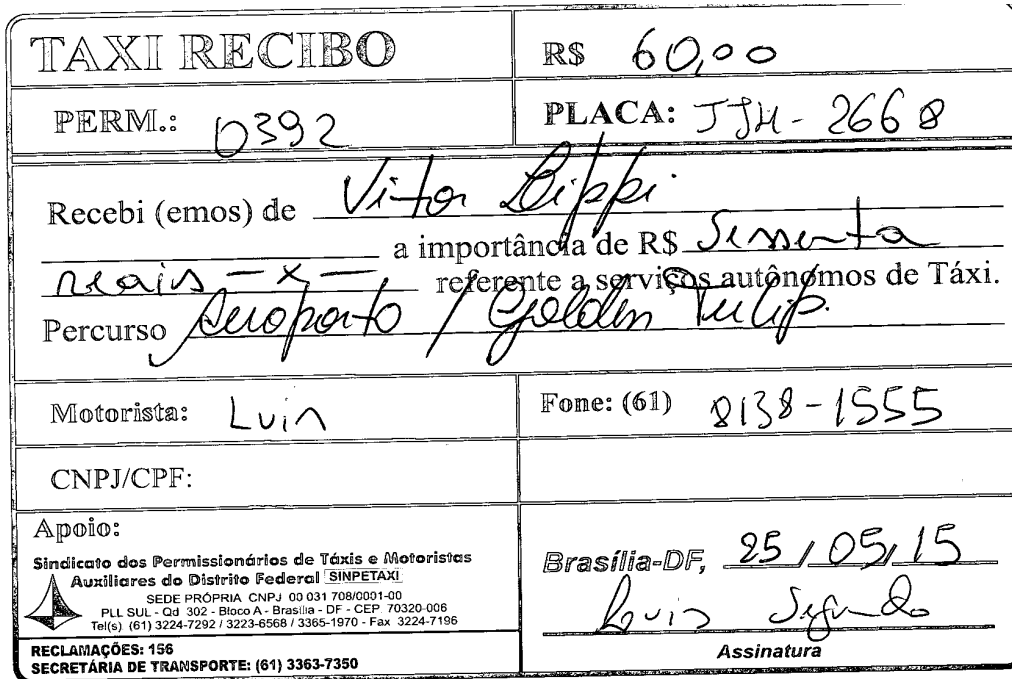 TAXI RECIBO
R$ 60,00
PERM.: 0392
PLACA: JJH - 2668
Recebi (emos) de Vitor Lippi
a importância de R$ Sessenta
reais - x - referente a serviços autônomos de Táxi.
Percurso Aeroporto / Golden Tulip.
Motorista: Luis
Fone: (61) 8138-1555
CNPJ/CPF:
Apoio:
Sindicato dos Permissionários de Táxis e Motoristas
Auxiliares do Distrito Federal SINPETAXI
SEDE PRÓPRIA CNPJ 00 031 708/0001-00
PLL SUL - Qd 302 - Bloco A - Brasília - DF - CEP 70320-006
Tel(s) (61) 3224-7292 / 3223-6568 / 3365-1970 - Fax 3224-7196
RECLAMAÇÕES: 156
SECRETÁRIA DE TRANSPORTE: (61) 3363-7350
Brasília-DF, 25 / 05 / 15
Luis Segundo
Assinatura